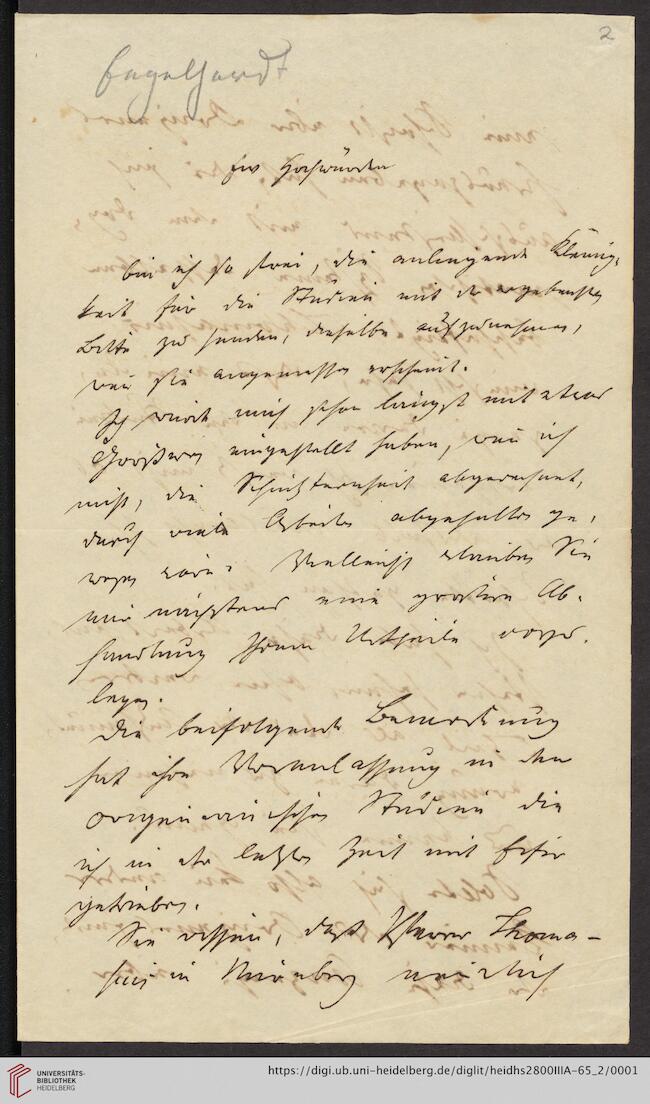 2
Engelhardt
Ew Hochwürden
bin ich so frei, die anliegende Kleinig-
keit für die Studien mit der ergebensten
Bitte zu senden, dieselbe aufzunehmen,
wenn sie angemessen erscheint.
Ich würde mich schon längst mit etwas
Größerem eingestellt haben, wenn ich
nicht, die Schüchternheit abgerechnet,
durch viele Arbeiten abgehalten ge-
wesen wäre. Vielleicht erlauben Sie
mir nächstens eine größere Ab-
handlung Ihrem Urtheile vorzu-
legen.
Die beifolgende Bemerkung
hat ihre Veranlassung in den
origenianischen Studien die
ich in der letzten Zeit mit Eifer
getrieben.
Sie wissen, daß Pfarrer Thoma-
sius in Nürnberg neulich
UNIVERSITÄTS-
BIBLIOTHEK
HEIDELBERG
https://digi.ub.uni-heidelberg.de/diglit/heidhs2800IIIA-65_2/0001